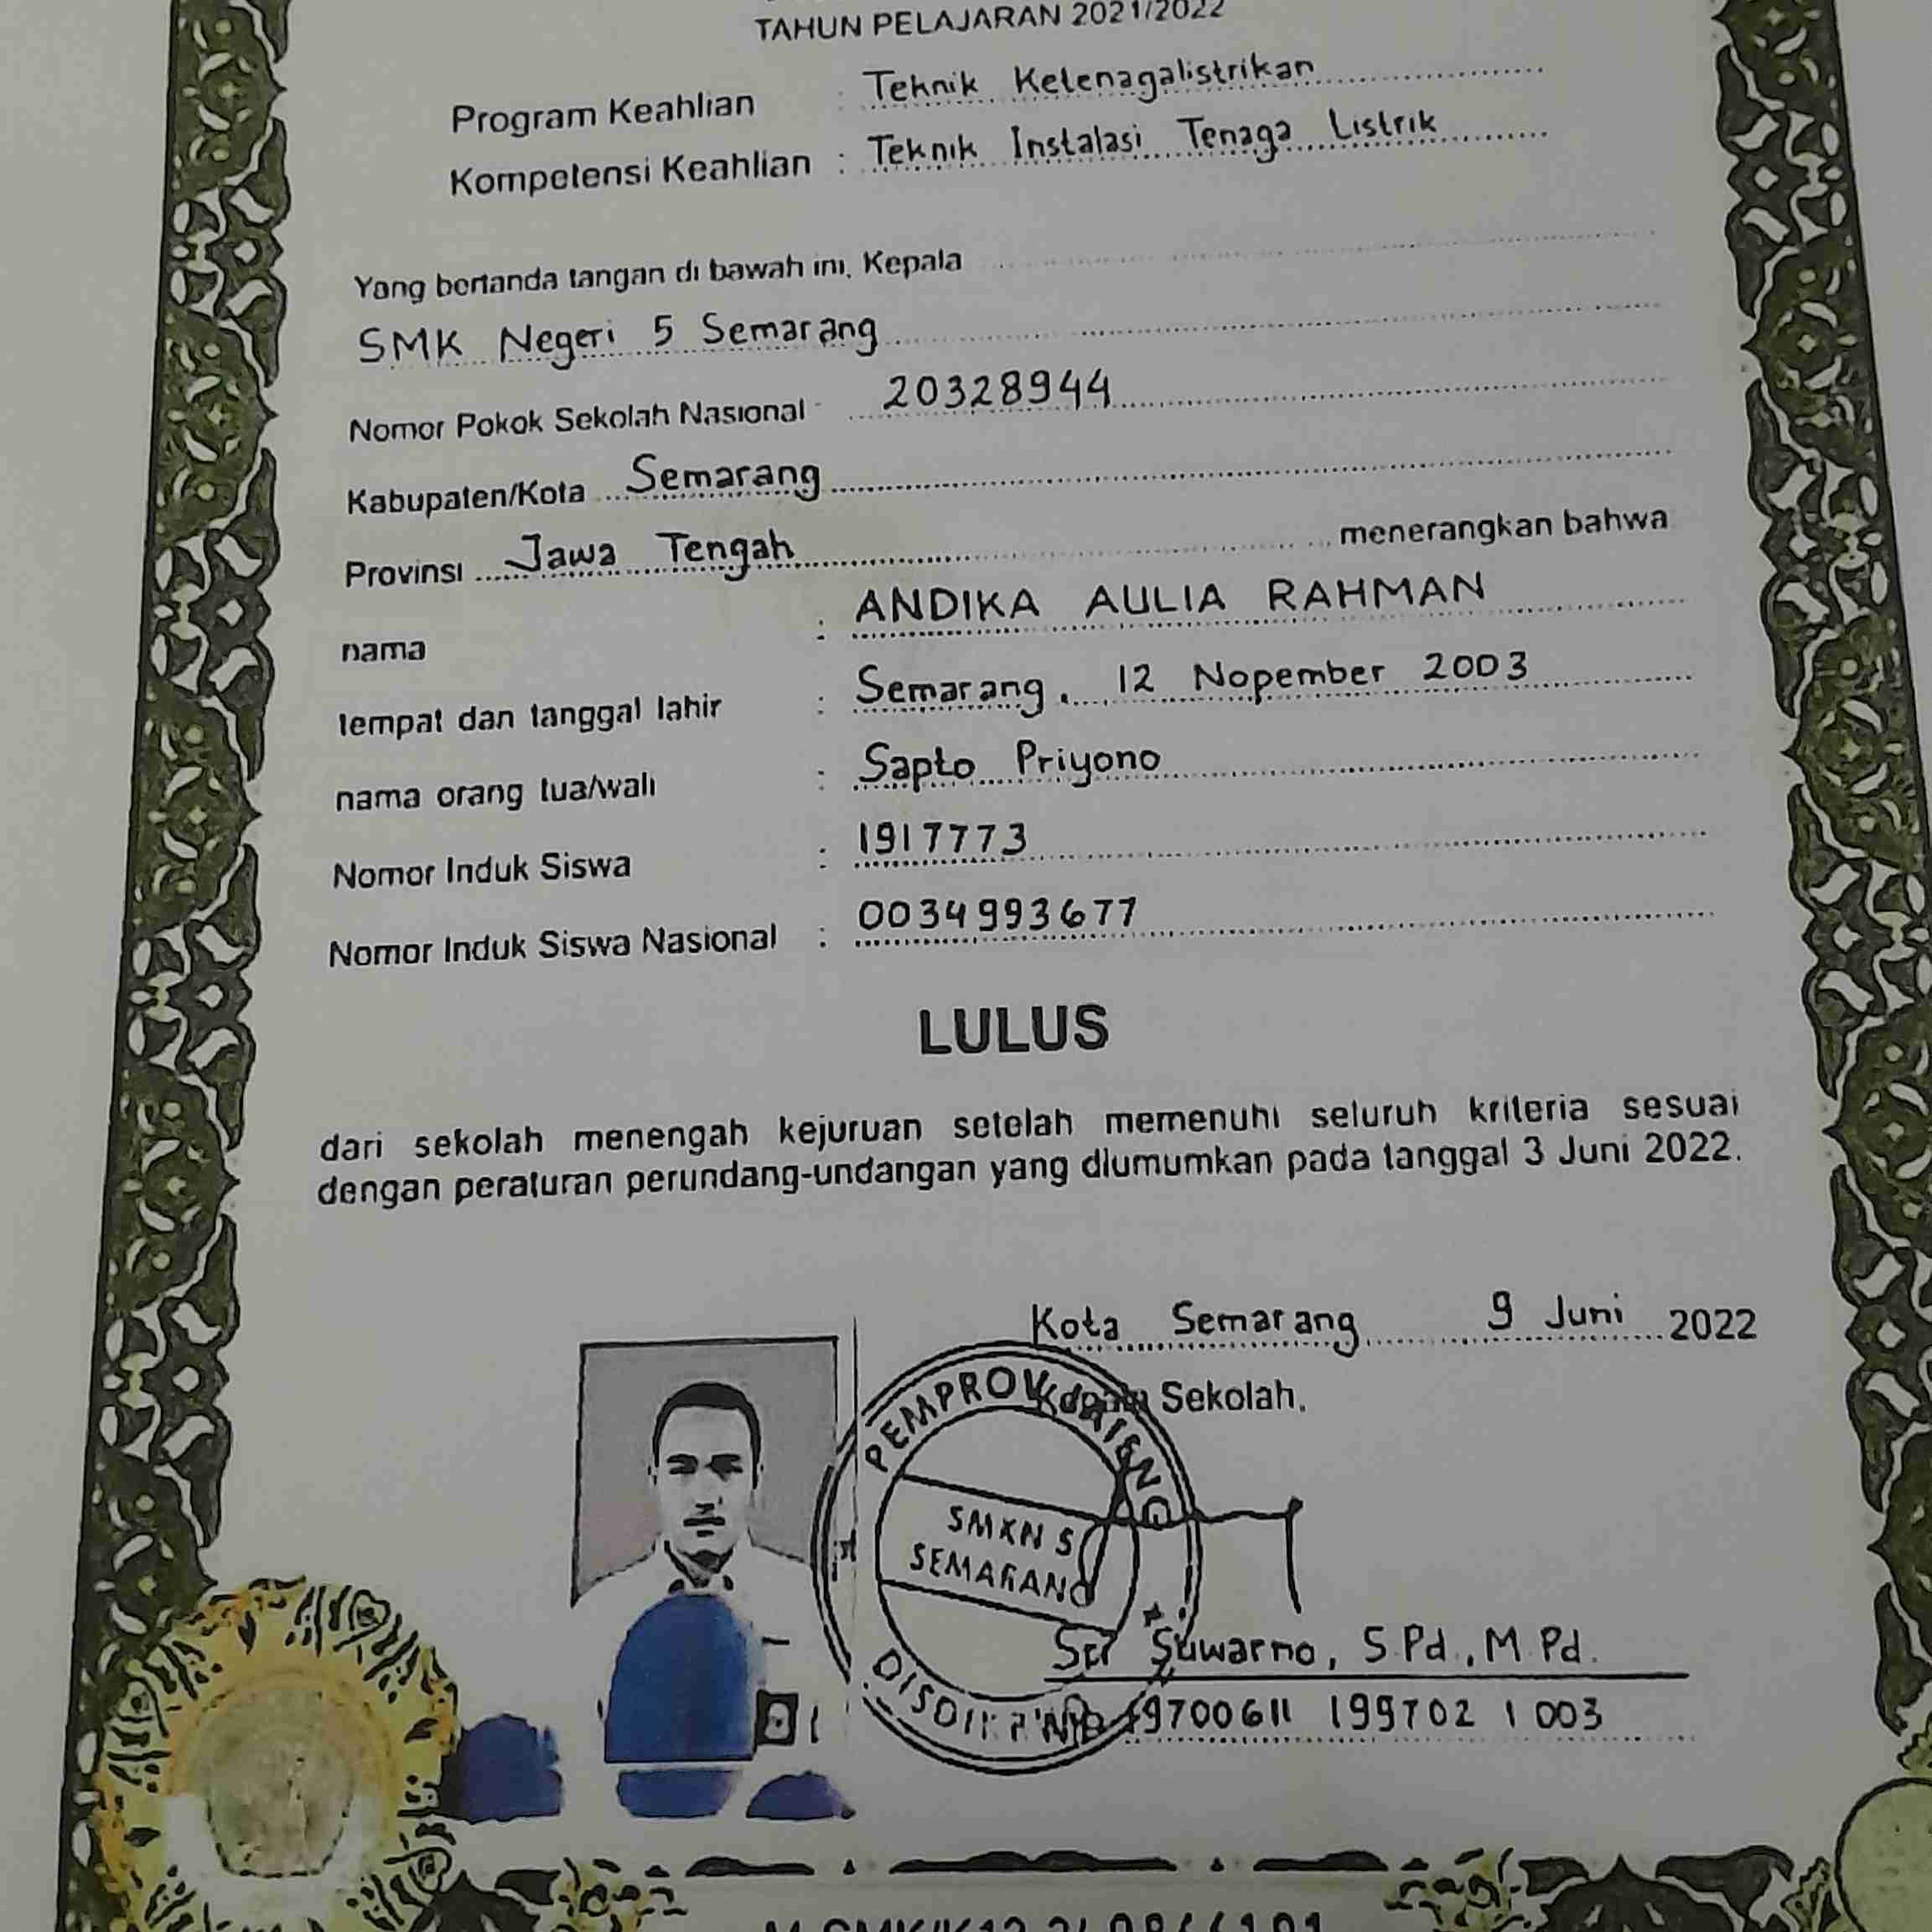 TAHUN PELAJARAN 2021/2022
Program Keahlian : Teknik Ketenagalistrikan
Kompetensi Keahlian : Teknik Instalasi Tenaga Listrik
Yang bertanda tangan di bawah ini, Kepala
SMK Negeri 5 Semarang
Nomor Pokok Sekolah Nasional 20328944
Kabupaten/Kota Semarang
Provinsi Jawa Tengah menerangkan bahwa
nama : ANDIKA AULIA RAHMAN
tempat dan tanggal lahir : Semarang, 12 Nopember 2003
nama orang tua/wali : Sapto Priyono
Nomor Induk Siswa : 1917773
Nomor Induk Siswa Nasional : 0034993677
LULUS
dari sekolah menengah kejuruan setelah memenuhi seluruh kriteria sesuai
dengan peraturan perundang-undangan yang diumumkan pada tanggal 3 Juni 2022.
Kota Semarang 9 Juni 2022
Kepala Sekolah,
PEMPROV JATENG
SMKN 5
SEMARANG
Suwarno, S.Pd., M.Pd.
19700611 199702 1 003